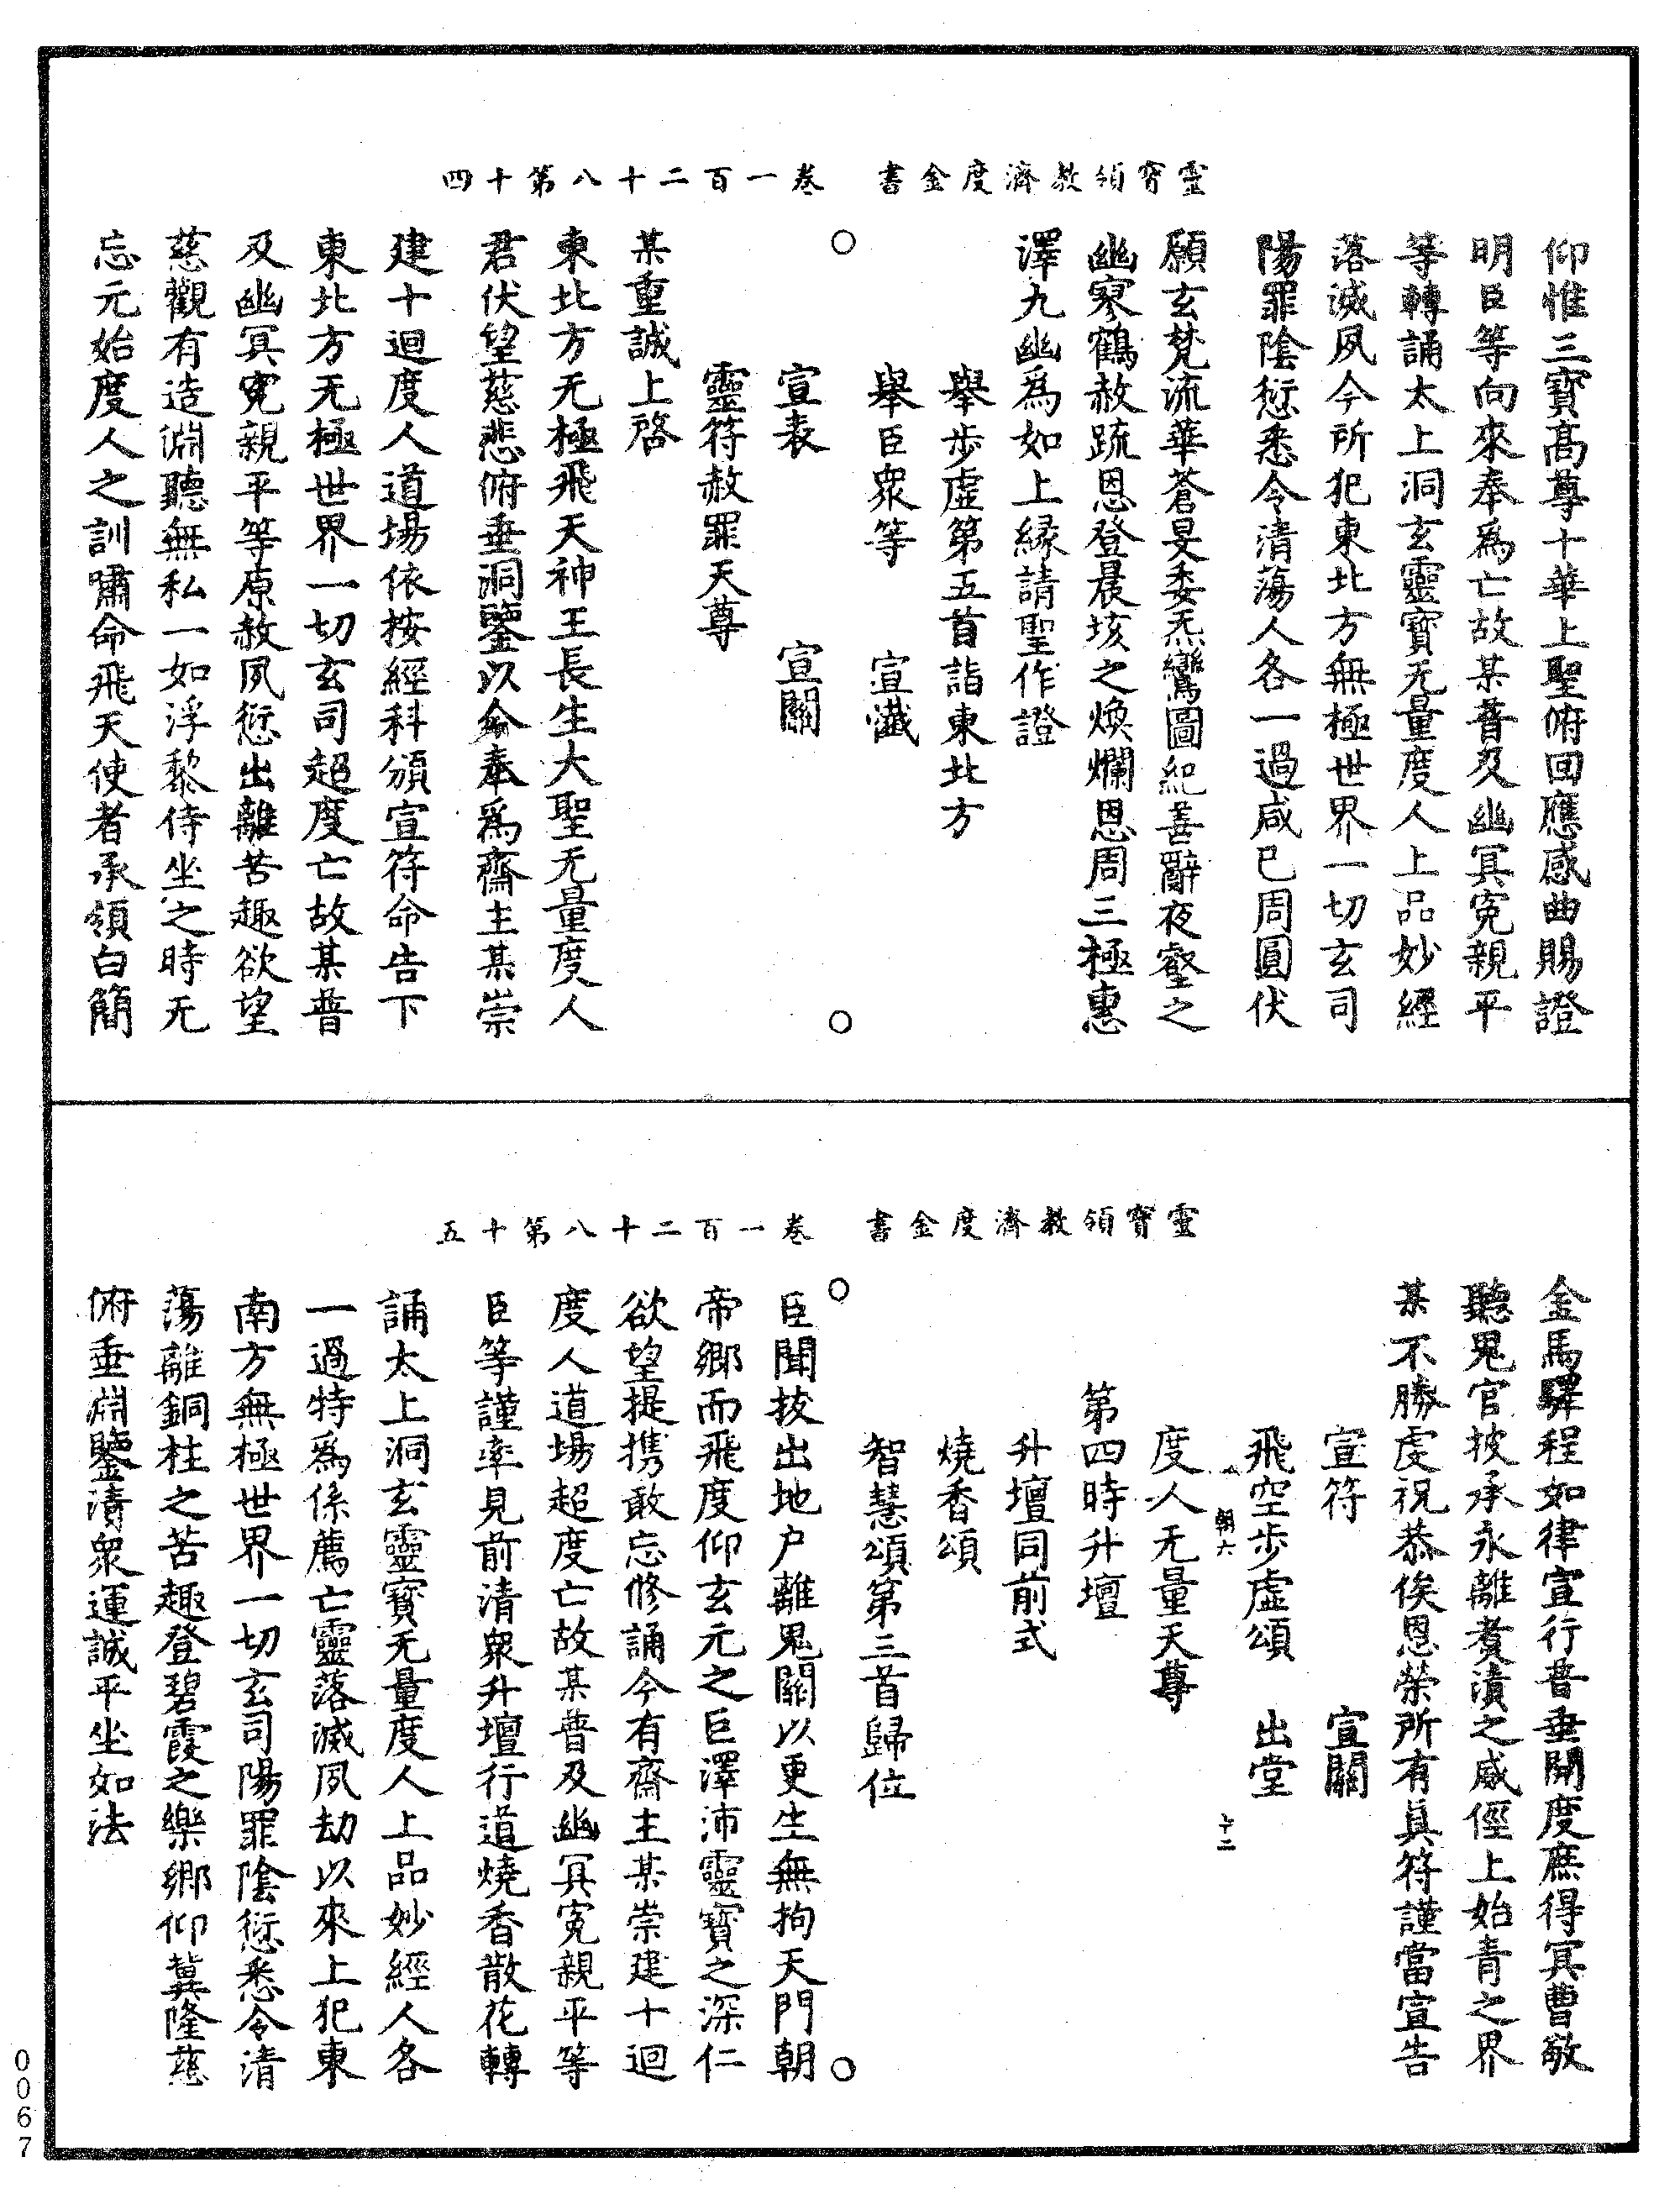 靈寶領教濟度金書　卷一百二十八第十四
仰惟三寶高尊十華上聖俯回應感曲賜證
明臣等向來奉爲亡故某普及幽冥寃親平
等轉誦太上洞玄靈寶无量度人上品妙經
落滅夙今所犯東北方無極世界一切玄司
陽罪陰愆悉令清蕩人各一過咸已周圓伏
願玄梵流華蒼旻委炁鸞圖紀善辭夜壑之
幽寥鶴赦疏恩登晨垓之煥爛恩周三極惠
澤九幽爲如上緣請聖作證
舉步虛第五首詣東北方
舉臣衆等　宣懺
宣表　宣關
靈符赦罪天尊
某重誠上啓
東北方无極飛天神王長生大聖无量度人
君伏望慈悲俯垂洞鑒以今奉爲齋主某崇
建十迴度人道場依按經科頒宣符命告下
東北方无極世界一切玄司超度亡故某普
及幽冥寃親平等原赦夙愆出離苦趣欲望
慈觀有造淵聽無私一如浮黎侍坐之時无
忘元始度人之訓嘯命飛天使者承領白簡
靈寶領教濟度金書　卷一百二十八第十五
金馬驛程如律宣行普垂開度庶得冥曹敬
聽鬼官披承永離煑漬之威徑上始青之界
某不勝虔祝恭俟恩榮所有眞符謹當宣告
宣符　宣關
飛空步虛頌　出堂
朝六　十二
度人无量天尊
第四時升壇
升壇同前式
燒香頌
智慧頌第三首歸位
臣聞拔出地户離鬼關以更生無拘天門朝
帝鄉而飛度仰玄元之巨澤沛靈寶之深仁
欲望提携敢忘修誦今有齋主某崇建十迴
度人道場超度亡故某普及幽冥寃親平等
臣等謹率見前清衆升壇行道燒香散花轉
誦太上洞玄靈寶无量度人上品妙經人各
一過特爲係薦亡靈落滅夙劫以來上犯東
南方無極世界一切玄司陽罪陰愆悉令清
蕩離銅柱之苦趣登碧霞之樂鄉仰冀隆慈
俯垂淵鑒清衆運誠平坐如法
0067